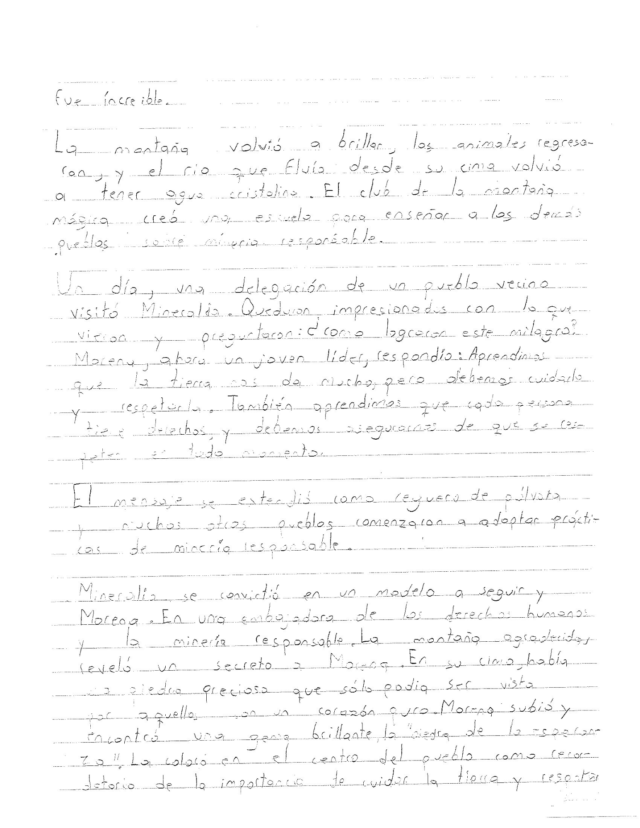 Fue increible.
La montaña volvió a brillar, los animales regresa-
ron, y el rio que fluía desde su cima volvió
a tener agua cristalina. El club de la montaña
mágica creó una escuela para enseñar a los demás
pueblos sobre mineria responsable.
Un día, una delegación de un pueblo vecino
visitó Mineralia. Quedaron impresionados con lo que
vieron y preguntaron: ¿como lograron este milagro?
Morena, ahora un joven líder, respondía: Aprendimos
que la tierra nos da mucho, pero debemos cuidarla
y respetarla. También aprendimos que cada persona
tiene derechos, y debemos asegurarnos de que se res-
peten en todo momento.
El mensaje se extendió como reguero de pólvora
y muchos otros pueblos comenzaron a adoptar prácti-
cas de minería responsable.
Mineralia se convirtió en un modelo a seguir y
Morena. En una embajadora de los derechos humanos
y la minería responsable. La montaña agradecida,
reveló un secreto a Morena. En su cima, había
una piedra preciosa que sólo podia ser vista
por aquellos con un corazón puro. Morena subió y
encontró una gema brillante, la "piedra de la esperan-
za". La colocó en el centro del pueblo como recor-
datorio de la importancia de cuidar la tierra y respetar